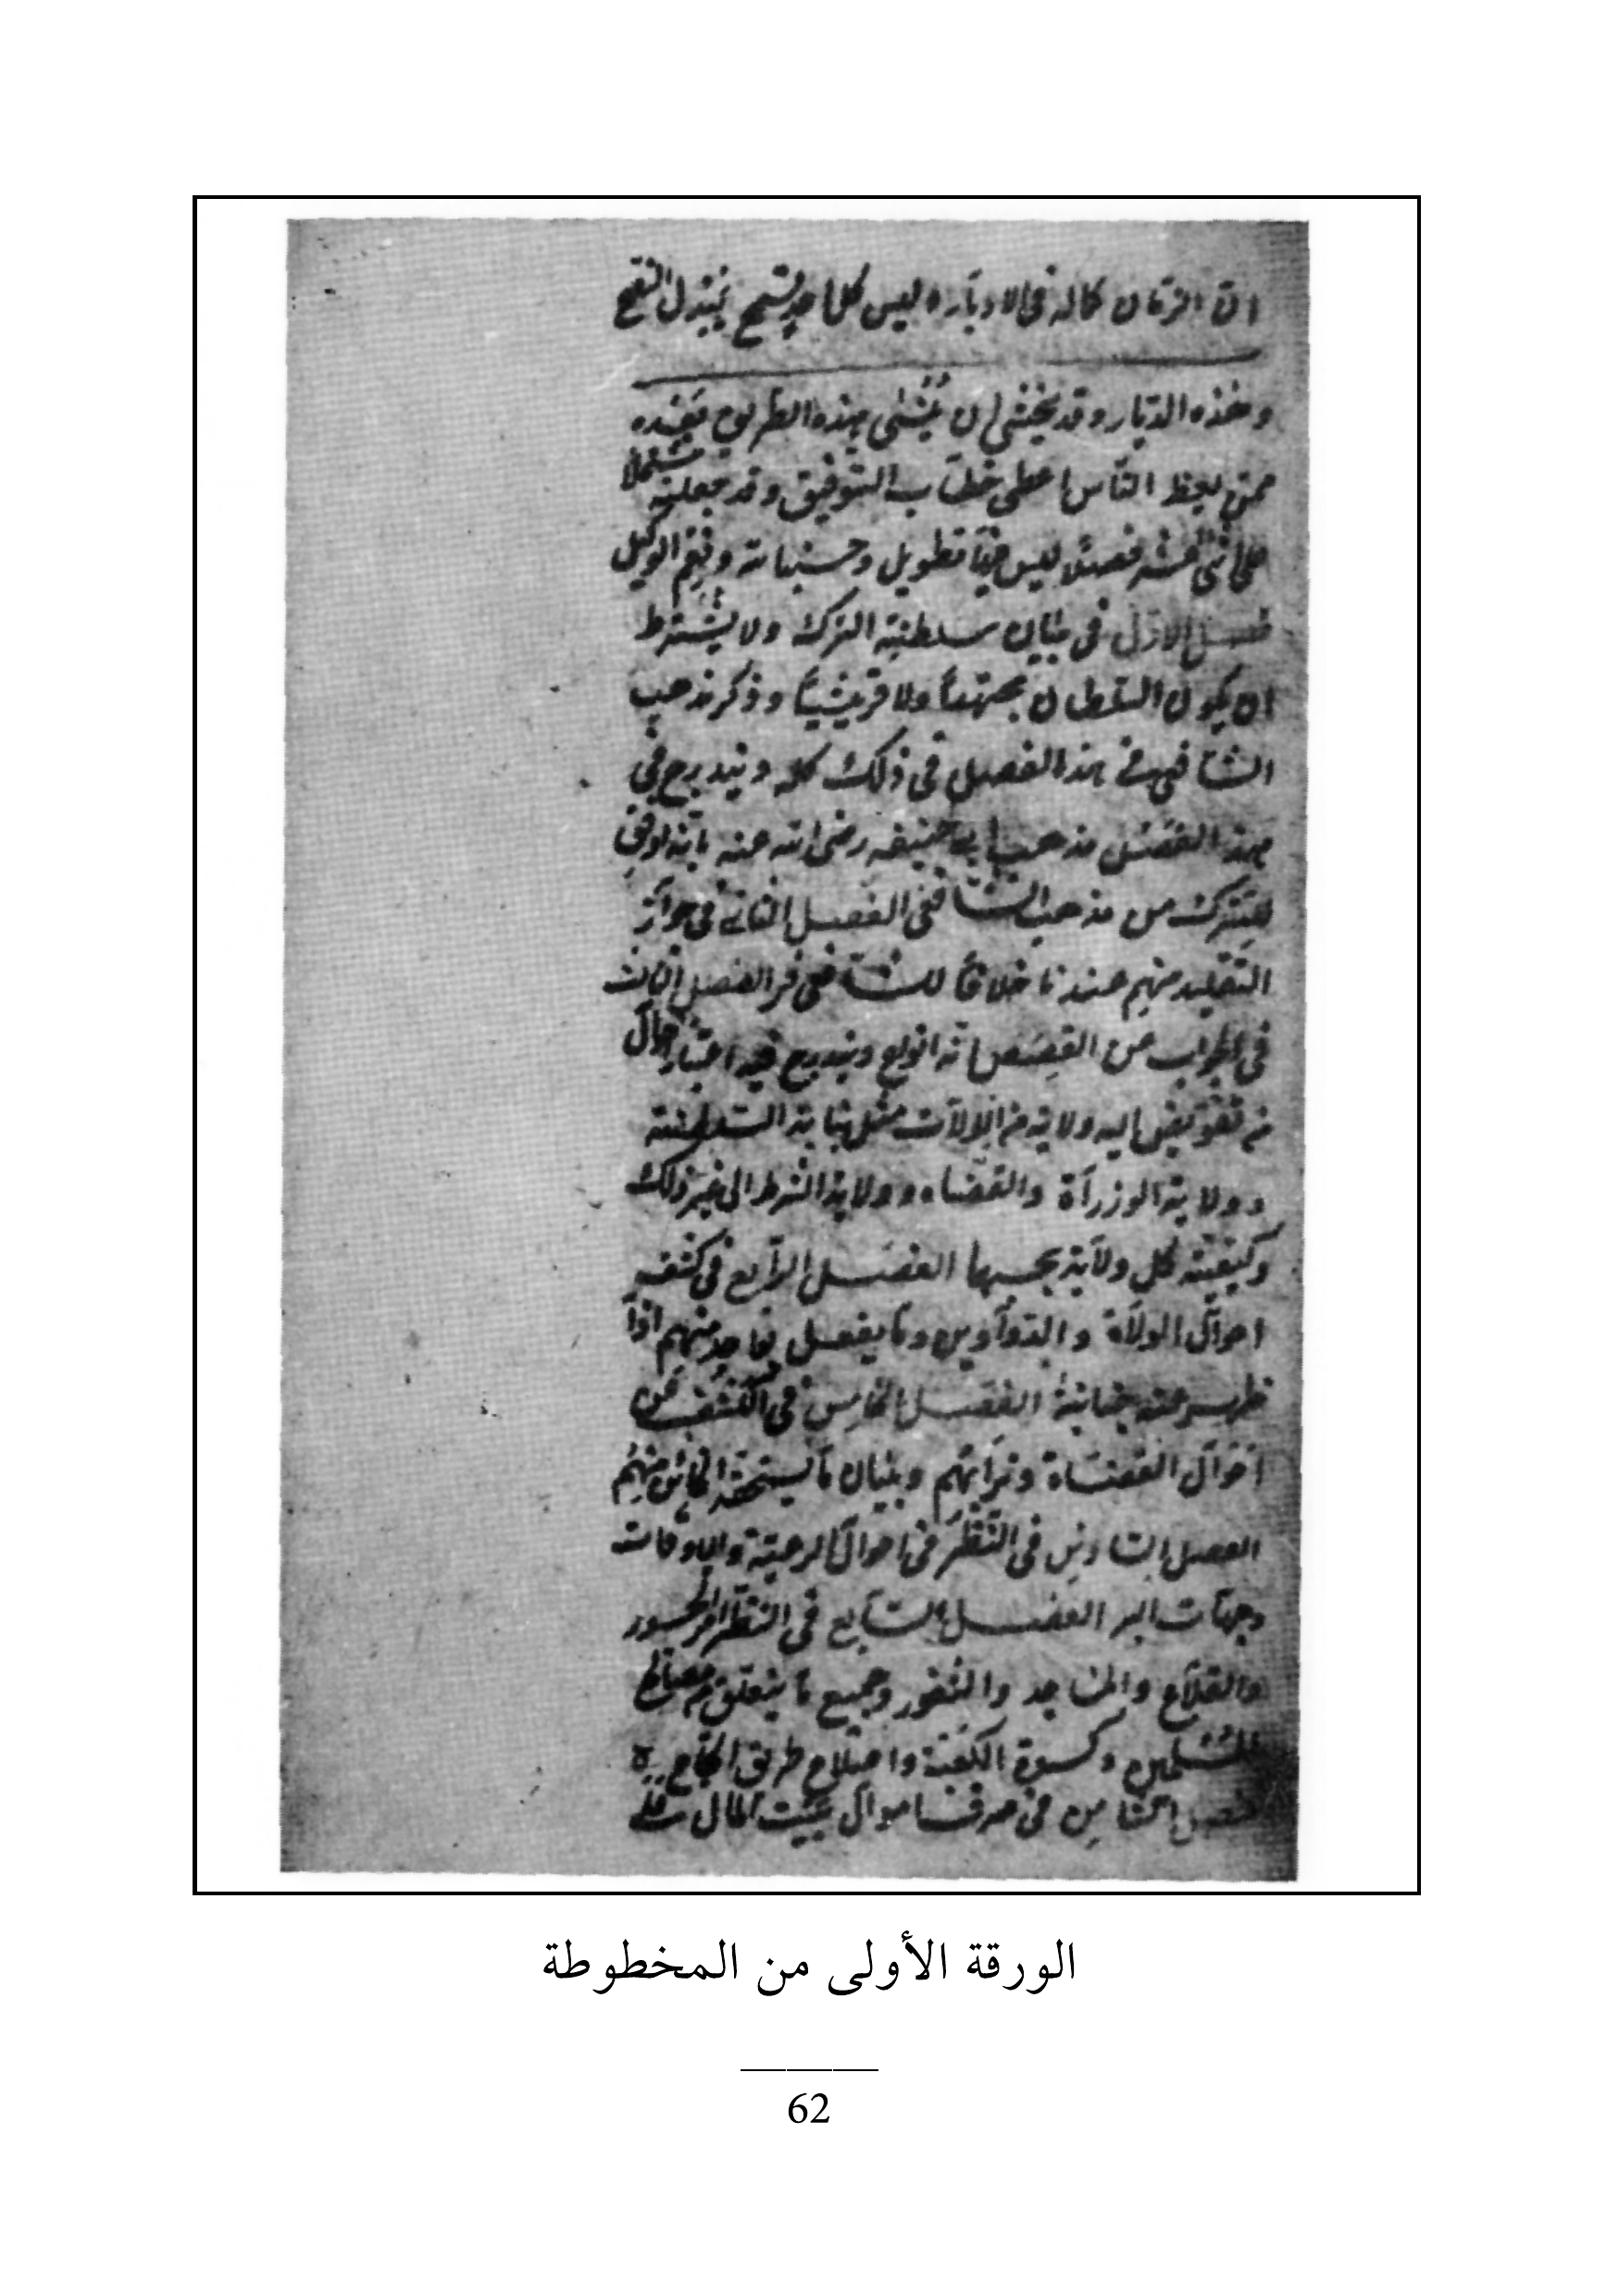 ان الزمان كماله في الادباره ليس كل احد يسمح يبذل النصح
وهذه الديار وقد يخشى ان بهذه الطريق
الناس اعطى خطاب التوفيق وقد جعلته مشتملا
على اثنى عشر فصلا ليس فيها تطويل وحسبنا الله ونعم الوكيل
فصل الاول في بيان سلطنة الترك ولا يشترط
ان يكون السلطان مجتهدا ولا قريشيا وذكر مذهب
الشافعي في هذا الفصل في ذلك كله ويندرج في
هذا الفصل مذهب ابي حنيفه رضى الله عنه بانه اوفق
للترك من مذهب الشافعى الفصل الثاني في جواز
التقليد منهم عندنا خلافا للشافعى الفصل الثالث
في من القصص انه انواع ويندرج فيه اعتبار احوال
من تفوض اليه ولاية من الولايات مثل نيابة السلطنة
وولاية الوزراة والقضاء وولاية الشرط الى غير ذلك
وكيفية كل ولاية بحسبها الفصل الرابع في كشف
احوال الولاة والدواوين وما يفعل بواحد منهم اذا
ظهر عنه خيانة الفصل الخامس في الكشف عن
احوال القضاة ونوابهم وبيان ما يستحقه الخائن منهم
الفصل السادس في النظر في احوال الرعية والاوقات
وجهات البر الفصل السابع في النظر في امر الجسور
والقلاع والمساجد والثغور وجميع ما يتعلق بمصالح
المسلمين وكسوة الكعبة واصلاح طريق الحجاج
فصل الثامن في صرف اموال بيت المال على
الورقة الأولى من المخطوطة
62